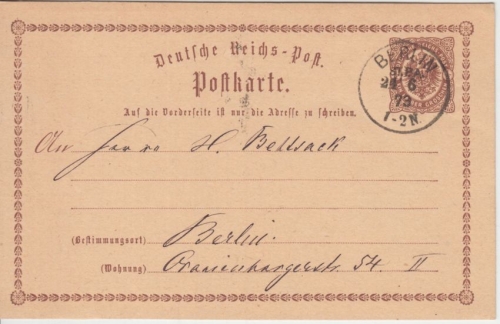 Deutsche Reichs-Post.
Postkarte.
BERLIN
24 6
73
1-2N.
Auf die Vorderseite ist nur die Adresse zu schreiben.
An Herrn H. Bettsack
(Bestimmungsort) Berlin.
(Wohnung) Oranienburgerstr. 54. II